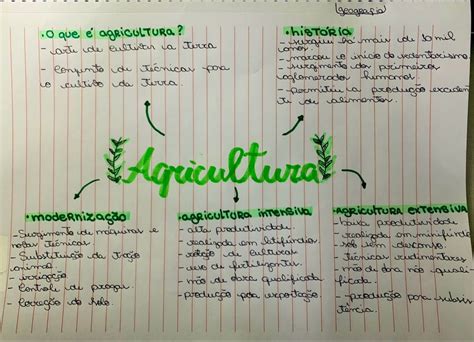 geografia
• O que é AGRICULTURA?
- arte de cultivar a terra
- Conjunto de técnicas para
o cultivo da terra.
• HISTÓRIA
- surgiu há mais de 10 mil
anos.
- marcou o início do sedentarismo
- surgimento dos primeiros
aglomerados humanos.
- permitiu a produção exceden
te de alimentos.
Agricultura
• MODERNIZAÇÃO
- Surgimento de máquinas e
novas técnicas.
- Substituição da tração
animal
- irrigação
- Controle de pragas.
- Correção do solo.
• AGRICULTURA INTENSIVA
- alta produtividade.
- realizada em latifúndios
- rotação de culturas
- uso de fertilizantes.
- mão de obra qualificada.
- produção para exportação.
AGRICULTURA EXTENSIVA
- baixa produtividade.
- realizada em minifúndios
- solo sem descanso.
- técnicas rudimentares
- mão de obra não quali
ficada.
- produção para subsis
tência.